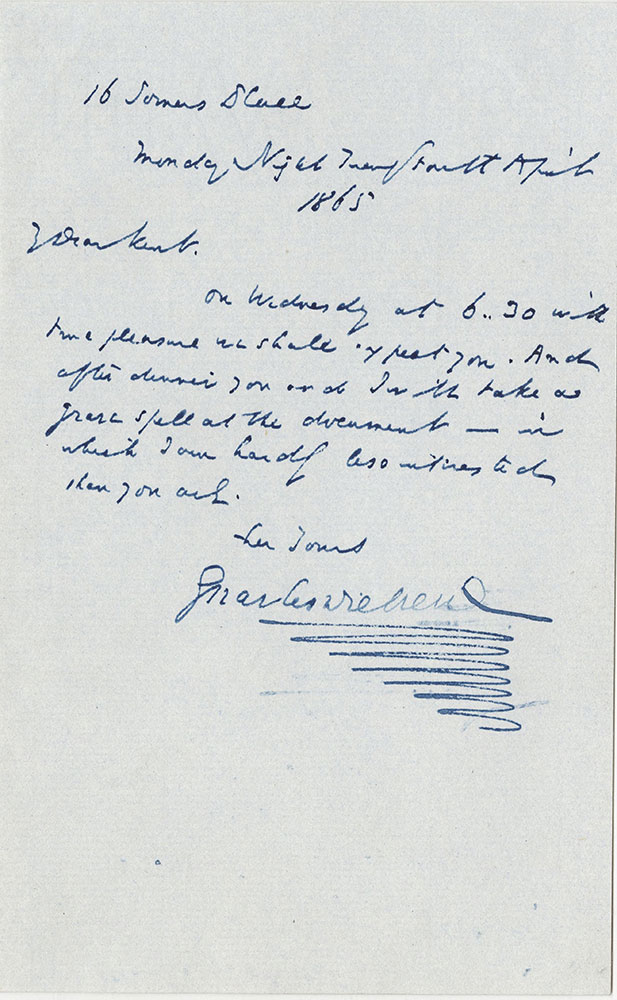 16 Somers Place
Monday Night Twenty Fourth April
1865
My Dear Kent.
On Wednesday at 6..30 with
true pleasure we shall expect you. And
after dinner you and I will take a
grave spell at the document — in
which I am hardly less interested
than you are.
Ever Yours
Charles Dickens